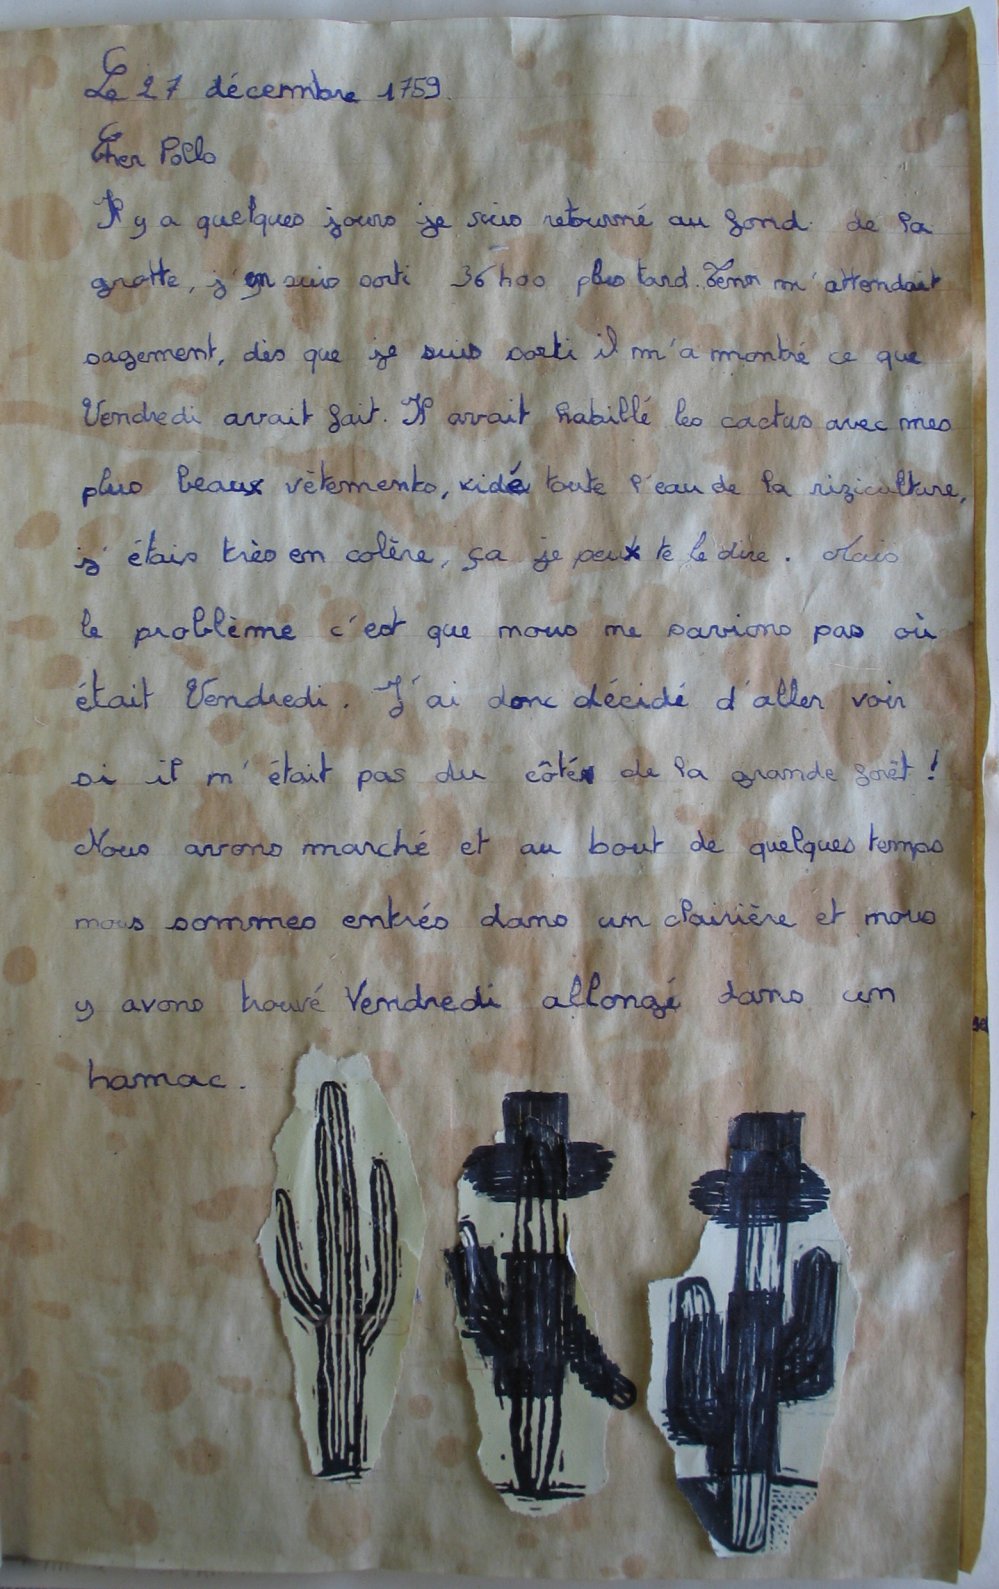 Le 27 décembre 1759.
Cher Pollo
Il y a quelques jours je suis retourné au fond de la
grotte, j'en suis sorti 36h00 plus tard. Tenn m'attendait
sagement, dès que je suis sorti il m'a montré ce que
Vendredi avait fait. Il avait habillé les cactus avec mes
plus beaux vêtements, vidé toute l'eau de la riziculture,
j'étais très en colère, ça je peux te le dire. Mais
le problème c'est que nous ne savions pas où
était Vendredi. J'ai donc décidé d'aller voir
si il n'était pas du côté de la grande forêt !
Nous avons marché et au bout de quelques temps
nous sommes entrés dans un clairière et nous
y avons trouvé Vendredi allongé dans un
hamac.